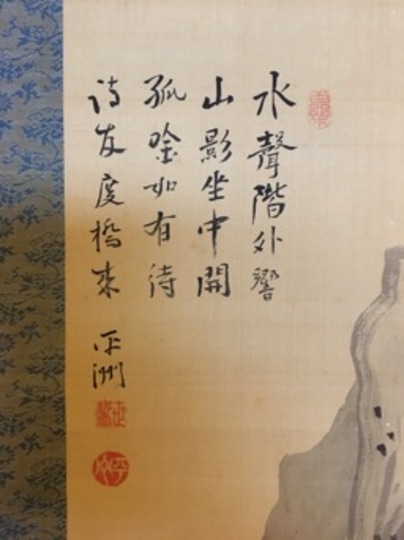 水聲階外響
山影坐中開
孤吟如有待
詩友度橋來
平洲